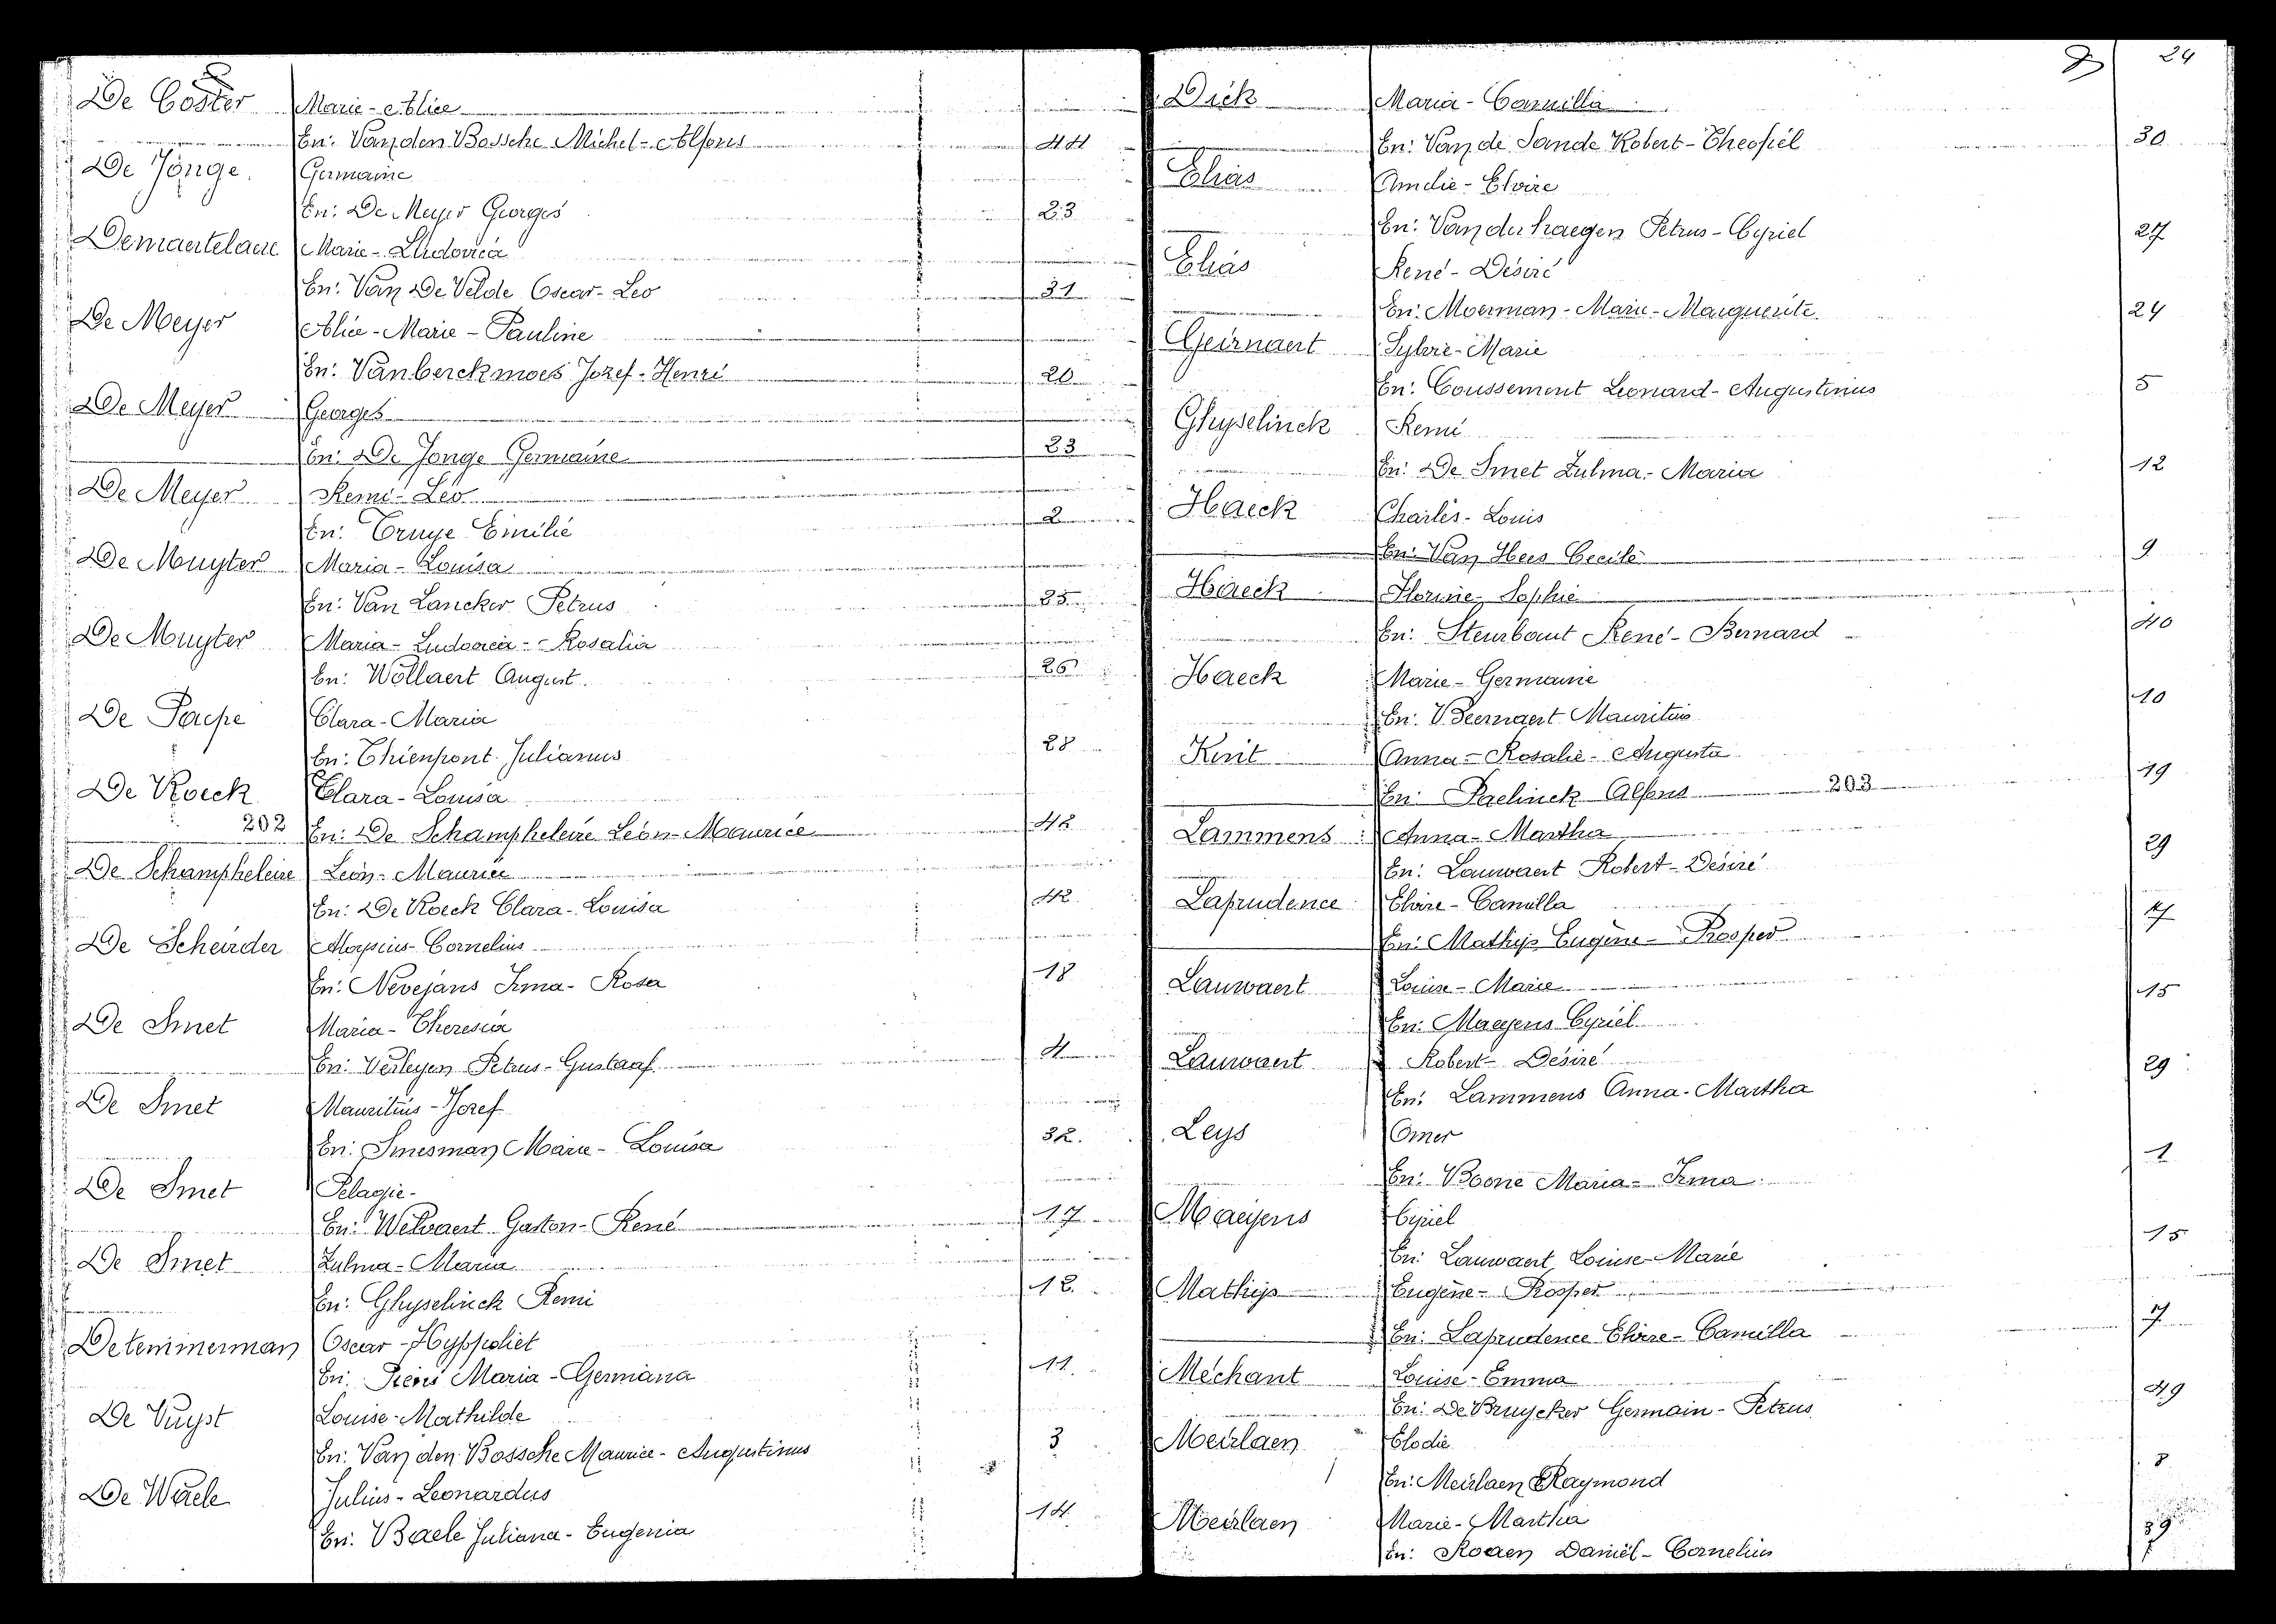 De Coster Marie-Alice
En: Van den Bossche Michel-Alfons 44
De Jonge. Germaine
En: De Meyer Georges 23
Demaertelaere Marie-Ludovica
En: Van De Velde Oscar-Leo 31
De Meyer Alice-Marie-Pauline
En: Vanberckmoes Jozef-Henri 20
De Meyer Georges
En: De Jonge Germaine 23
De Meyer Remi-Leo
En: Truye Emilie 2
De Muyter Maria-Louisa
En: Van Lancker Petrus 25
De Muyter Maria-Ludovica-Rosalia
En: Wollaert August. 26
De Paepe Clara-Maria
En: Thienpont Julianus 28
De Roeck Clara-Louisa
202 En: De Schampheleire Leon-Maurice 42
De Schampheleire Leon-Maurice
En: De Roeck Clara-Louisa 42
De Scheirder Aloysius-Cornelius
En: Nevejans Irma-Rosa 18
De Smet Maria-Theresia
En: Verleyen Petrus-Gustaaf 4
De Smet Mauritius-Jozef
En: Smesman Marie-Louisa 32.
De Smet Pelagie-
En: Welvaert Gaston-René 17
De Smet Zulma-Maria
En: Ghyselinck Remi 12
Detemmerman Oscar-Hyppoliet
En: Maria-Germana 11
De Vuyst Louise-Mathilde
En: Van den Bossche Maurice-Augustinus 3
De Waele Julius-Leonardus
En: Baele Juliana-Eugenia 14
24
Dick Maria-Camilla
En: Van de Sande Robert-Theofiel 30
Elias Amelie-Elvire
En: Van der haegen Petrus-Cyriel 27
Elias René-Désiré
En: Moerman-Marie-Marguerite 24
Geirnaert Sylvie-Marie
En: Coussement Leonard-Augustinus 5
Ghyselinck Remi
En: De Smet Zulma-Maria 12
Haeck Charles-Louis
En: Van Hees Cecile 9
Haeck Florine-Sophie
En: Steurbaut René-Bernard 40
Haeck Marie-Germaine
En: Mauritius 10
Knit Anna-Rosalie-Augusta
En: Paelinck Alfons 203 19
Lammens Anna-Martha
En: Lauwaert Robert-Désiré 29
Laprudence Elvire-Camilla
En: Mathijs Eugène-Prosper 7
Lauwaert Louise-Marie
En: Maeyens Cyriel 15
Lauwaert Robert-Désiré
En: Lammens Anna-Martha 29
Leys Omer
En: Boone Maria-Irma 1
Maeyens Cyriel
En: Lauwaert Louise-Marie 15
Mathijs Eugène-Prosper
En: Laprudence Elvire-Camilla 7
Mechant Louise-Emma
En: De Bruycker Germain-Petrus 49
Meulaen Elodie
En: Meulaen Raymond 8
Meulaen Marie-Martha
En: Rogen Daniël-Cornelius 39